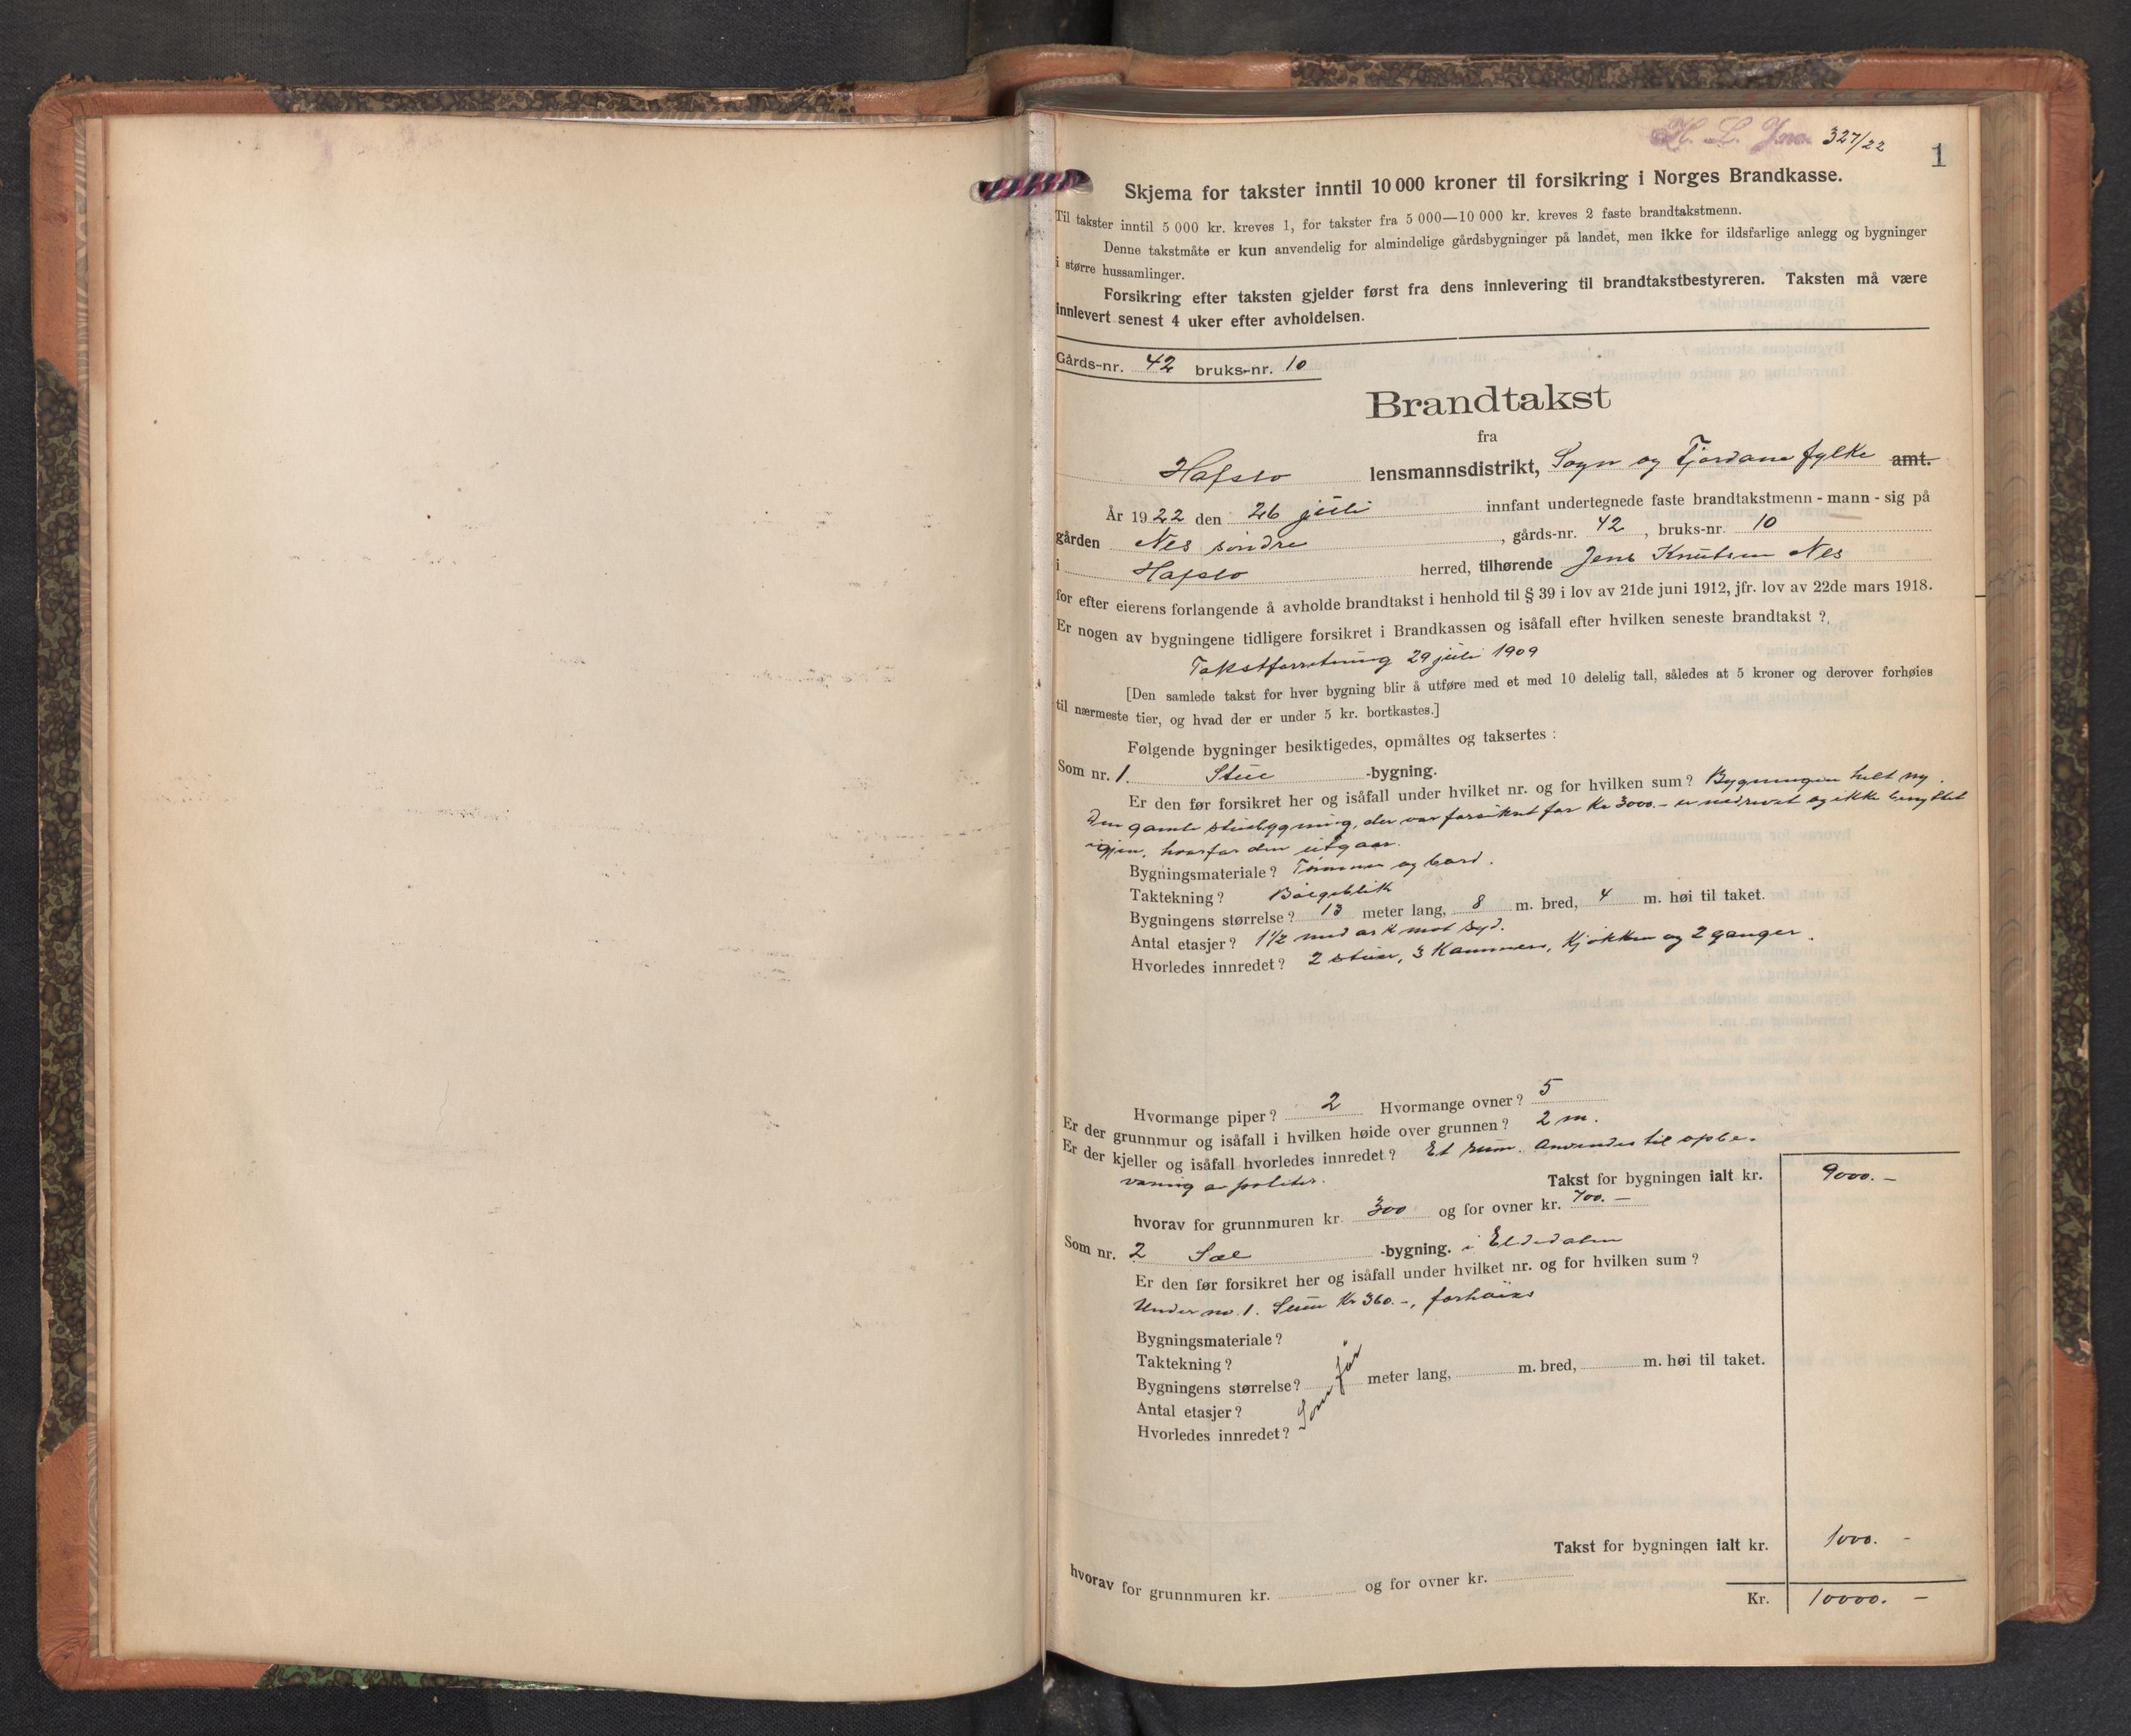 H. L. Jno. 327/22
1
Skjema for takster inntil 10 000 kroner til forsikring i Norges Brandkasse.
Til takster inntil 5 000 kr. kreves 1, for takster fra 5 000—10 000 kr. kreves 2 faste brandtakstmenn.
Denne takstmåte er kun anvendelig for almindelige gårdsbygninger på landet, men ikke for ildsfarlige anlegg og bygninger
i større hussamlinger.
Forsikring efter taksten gjelder først fra dens innlevering til brandtakstbestyreren. Taksten må være
innlevert senest 4 uker efter avholdelsen.
Gårds-nr. 42 bruks-nr. 10
Brandtakst
fra
Hafslo lensmannsdistrikt, Sogn og Fjordane fylke amt.
År 1922 den 26 juli innfant undertegnede faste brandtakstmenn - mann - sig på
gården Nes söndre, gårds-nr. 42, bruks-nr. 10
i Hafslo herred, tilhørende Jens Knutsen Nes
for efter eierens forlangende å avholde brandtakst i henhold til § 39 i lov av 21de juni 1912, jfr. lov av 22de mars 1918.
Er nogen av bygningene tidligere forsikret i Brandkassen og isåfall efter hvilken seneste brandtakst ?
Takstforretning 29 juli 1909
[Den samlede takst for hver bygning blir å utføre med et med 10 delelig tall, således at 5 kroner og derover forhøies
til nærmeste tier, og hvad der er under 5 kr. bortkastes.]
Følgende bygninger besiktigedes, opmåltes og taksertes :
Som nr. 1 Stue -bygning.
Er den før forsikret her og isåfall under hvilket nr. og for hvilken sum ? Bygningen helt ny.
Den gamle stuebygning, der var forsikret for Kr 3000.- er nedrevet og ikke benyttet
igjen, hvorfor den utgaar.
Bygningsmateriale ? Tömmer og bord.
Taktekning ? Bölgeblik
Bygningens størrelse ? 13 meter lang, 8 m. bred, 4 m. høi til taket.
Antal etasjer ? 1 1/2 med ark mot syd.
Hvorledes innredet ? 2 stuer, 3 Kammers, Kjökken og 2 ganger.
Hvormange piper ? 2 Hvormange ovner ? 5
Er der grunnmur og isåfall i hvilken høide over grunnen ? 2 m.
Er der kjeller og isåfall hvorledes innredet ? Et rum. Anvendes til opbe-
varing av poteter.
Takst for bygningen ialt kr. 9000.-
hvorav for grunnmuren kr. 300 og for ovner kr. 700.-
Som nr. 2 Sæl -bygning. i Eldedalen
Er den før forsikret her og isåfall under hvilket nr. og for hvilken sum ?
Under no. 1. Sum Kr 360.-, forhöies
Bygningsmateriale ?
Taktekning ?
Bygningens størrelse ? meter lang, m. bred, m. høi til taket.
Antal etasjer ?
Hvorledes innredet ?
Som för
Takst for bygningen ialt kr. 1000.-
hvorav for grunnmuren kr. og for ovner kr.
Kr. 10000.-